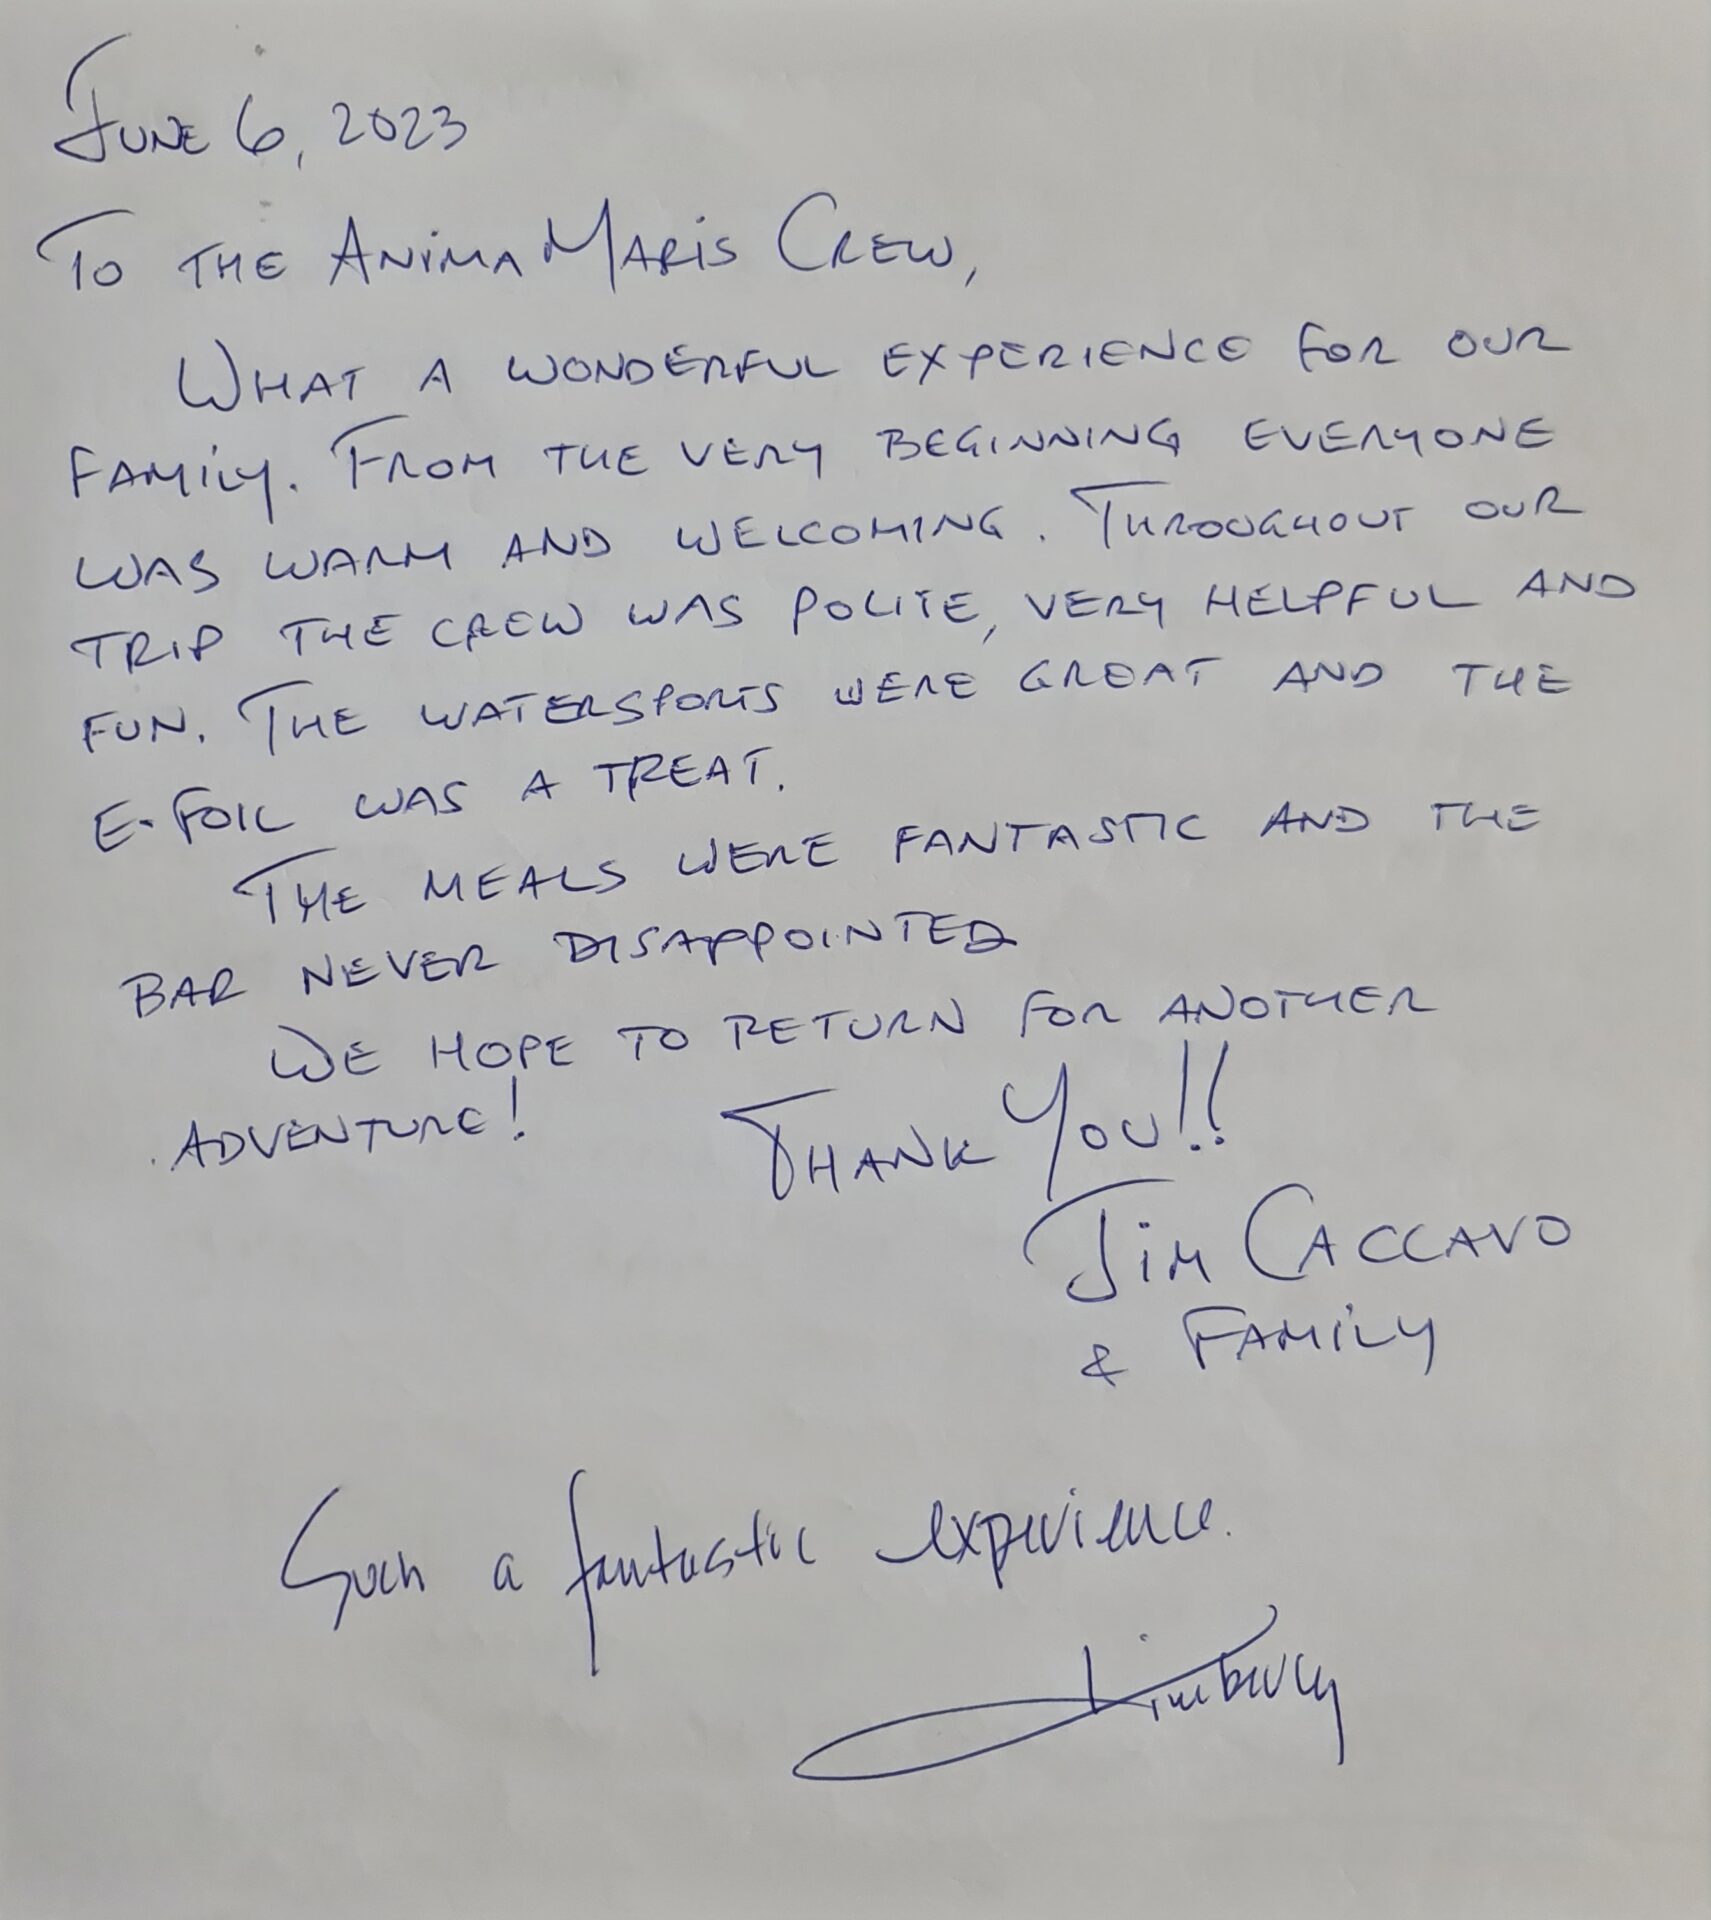 JUNE 6, 2023
TO THE ANIMA MARIS CREW,
WHAT A WONDERFUL EXPERIENCE FOR OUR
FAMILY. FROM THE VERY BEGINNING EVERYONE
WAS WARM AND WELCOMING. THROUGHOUT OUR
TRIP THE CREW WAS POLITE, VERY HELPFUL AND
FUN. THE WATERSPORTS WERE GREAT AND THE
E-FOIL WAS A TREAT.
THE MEALS WERE FANTASTIC AND THE
BAR NEVER DISAPPOINTED
WE HOPE TO RETURN FOR ANOTHER
ADVENTURE!
THANK YOU!!
JIM CACCAVO
& FAMILY
Such a fantastic experience.
Kimberly